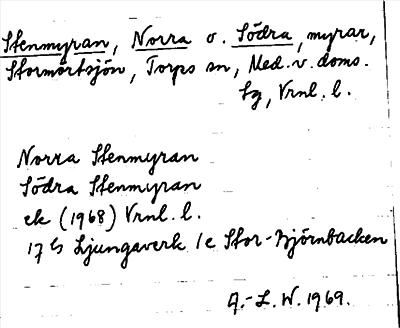 Stenmyran, Norra o. Södra, myrar,
Stormörtsjön, Torps sn, Med. v. doms.
tg, Vrnl. l.
Norra Stenmyran
Södra Stenmyran
ek (1968) Vrnl. l.
17 G Ljungaverk 1e Stor-Björnbacken
A.-L. W. 1969.